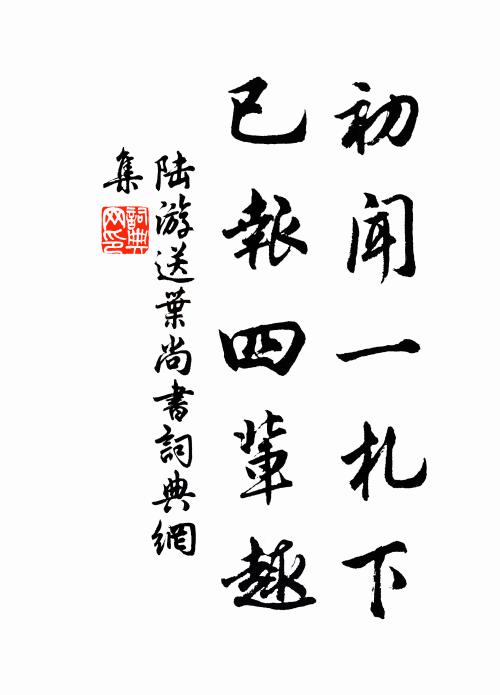 初聞一札下
已報四輩趣
陸游送葉尚書詞典網
集
詞典
网印